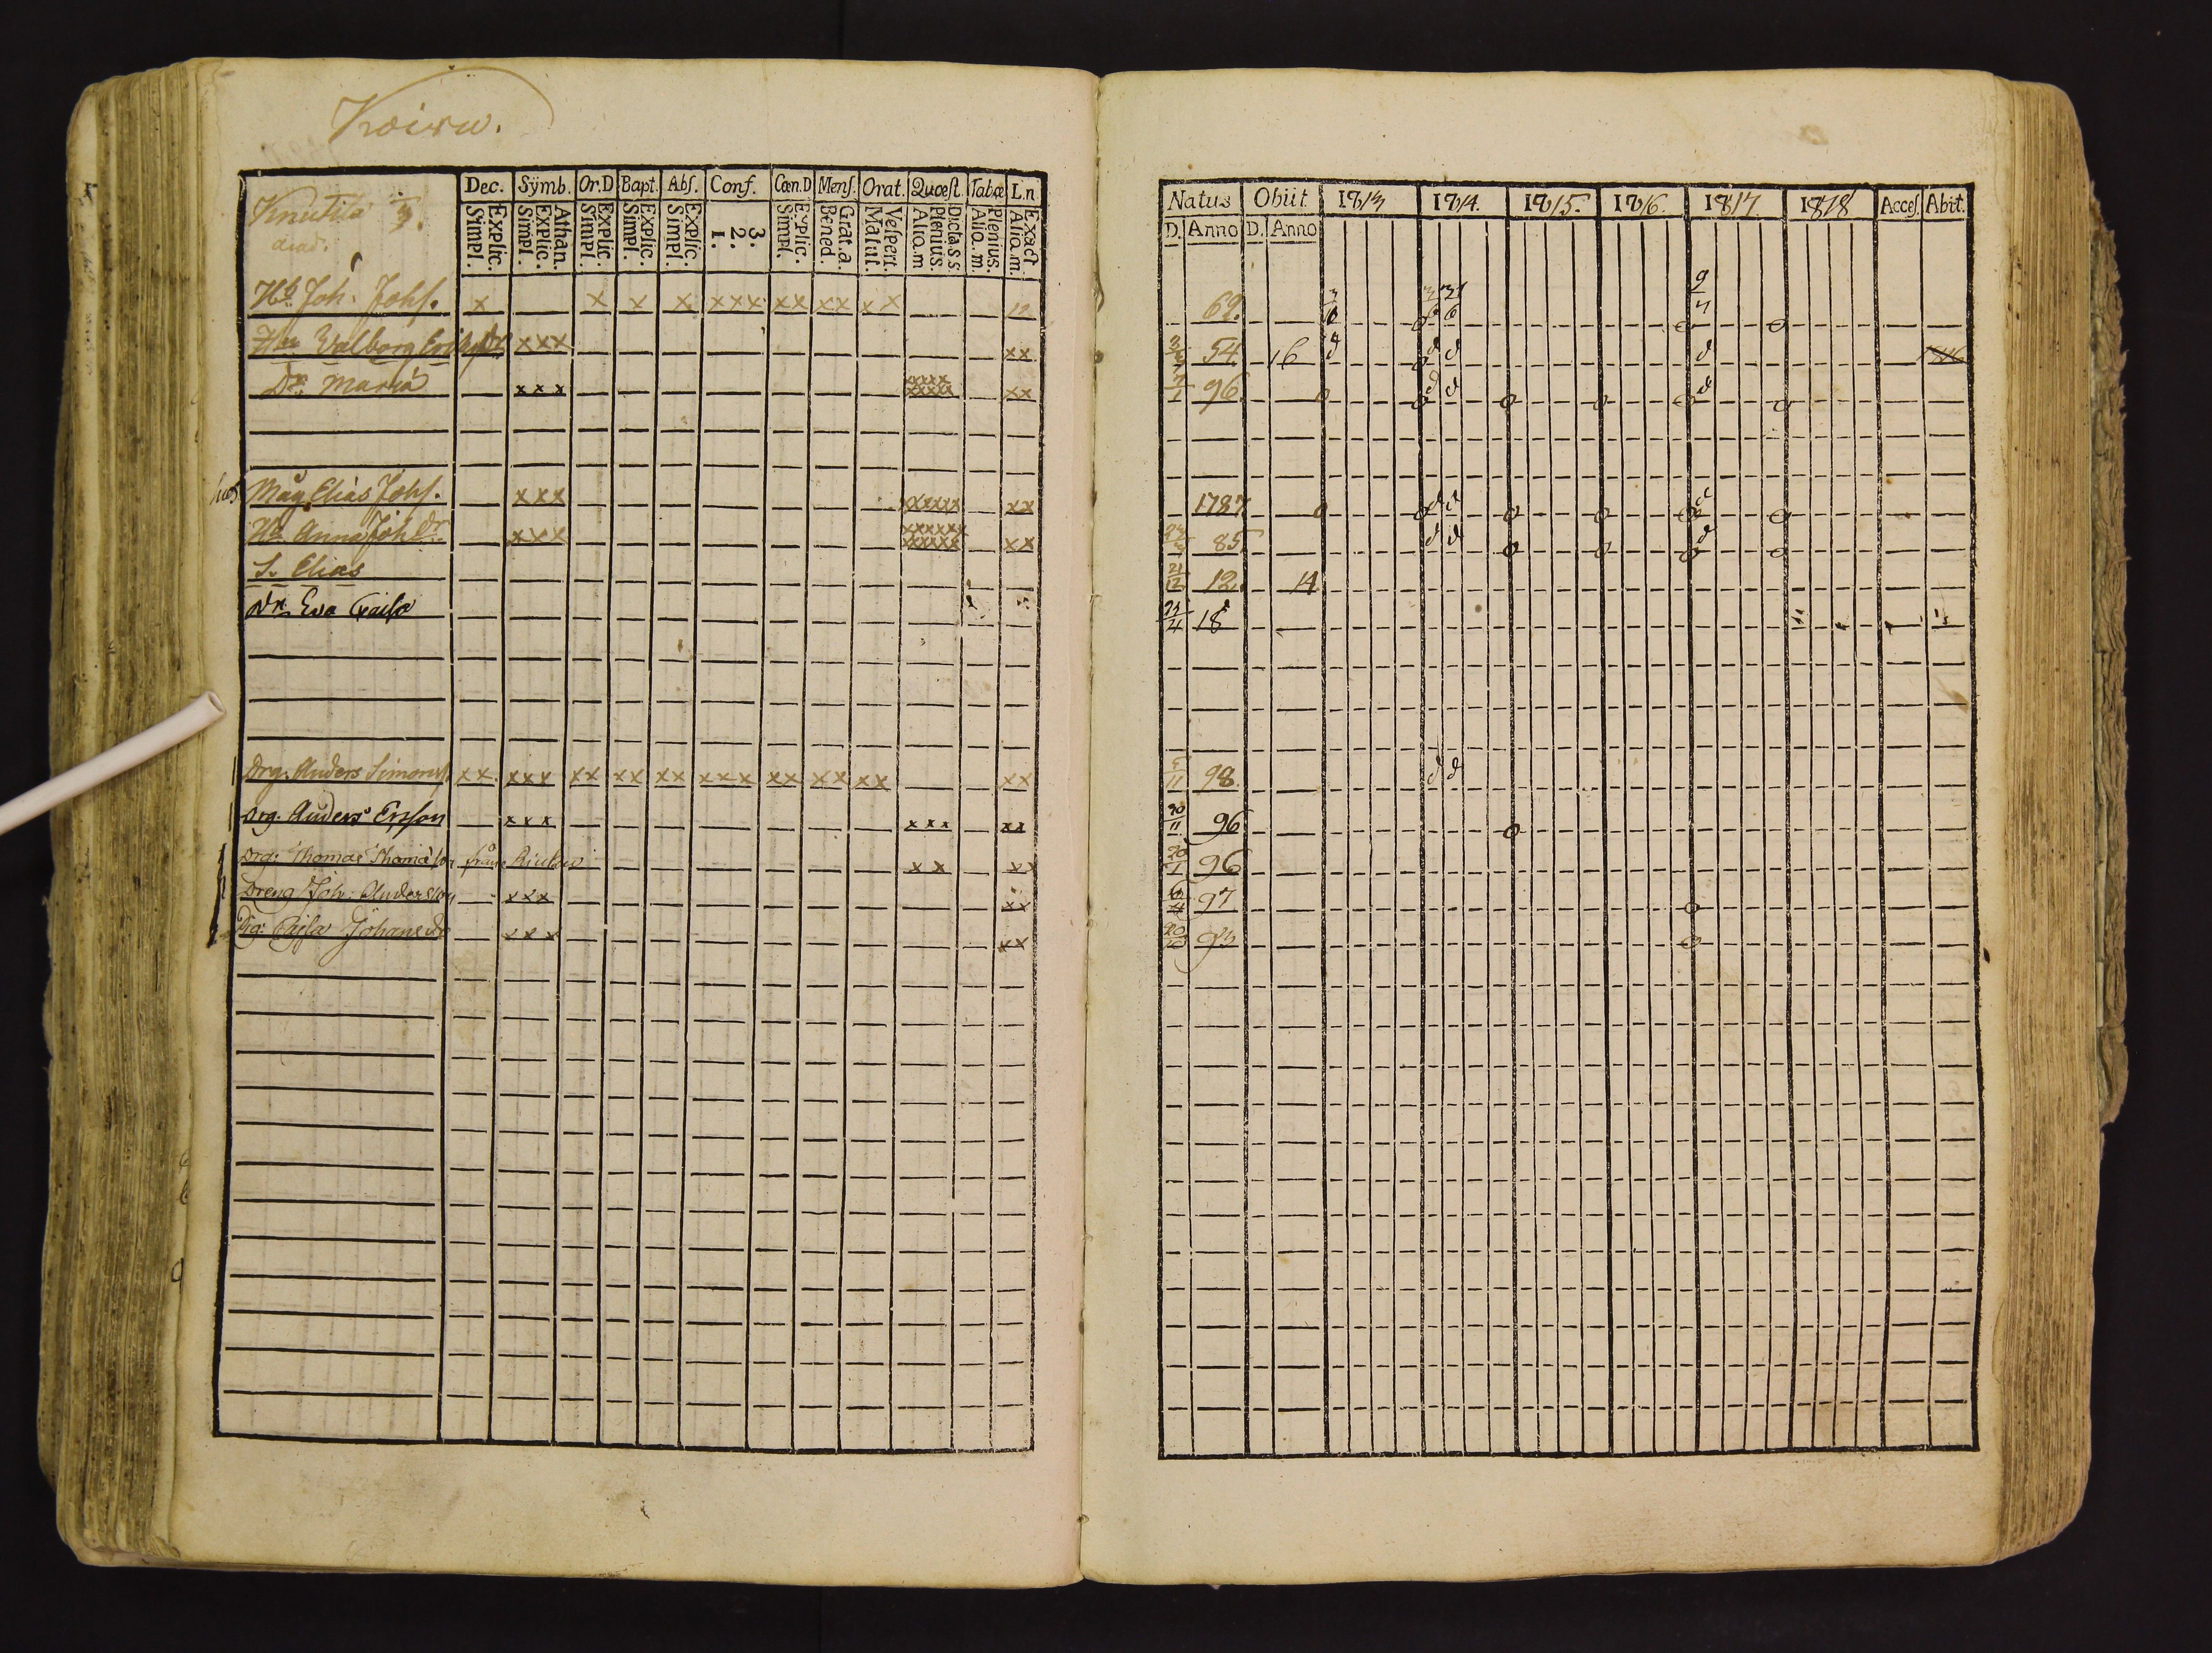 Koiru.
Dec. Sÿmb. Or.D Bapt. Abs. Conf. Cœn.D Mens. Orat. Quæst. Tabæ L.n
Knutila
Explic. Simpl. Athan. Explic. Simpl. Explic. Simpl. Explic. Simpl. Explic. Simpl. 3. 2. 1. Explic. Simpl. Grat.a. Bened. Vespert. Matut. Dicta s.s. Plenius. Aliq.m Plenius. Aliq.m. Exact Aliq.m.
Hb. Joh. Johs. x x x x xxx xx xx xx
Hu Valborg xxx xx
Dr. Maria xxx xxxx xxxxx xx
Måg Elias Johs. xxx xxxxxx xx
Hu Anna Joh.dr xxx xxxxxx xxxxxx xx
S. Elias
Dr. Eva Caisa
Drg. Anders Simonss xx xxx xx xx xx xxx xx xx xx xx
Drg. Anders Ersson xxx xxx xx
Drg. Thomas Thomasson från xx xx
Dreng Joh. Andersson xxx xx
Pig. Cajsa Johansdr xxx xx
Natus Obiit 1813 1814. 1815. 1816. 1817 1818 Acces. Abit.
D. Anno D. Anno
3/6 9/4
54 16 1816
7/1 96
1787
85
21/12 12. 14
23/4 18
5/11 98.
30/11 96
20/1 96
6/4 97
20/10 93